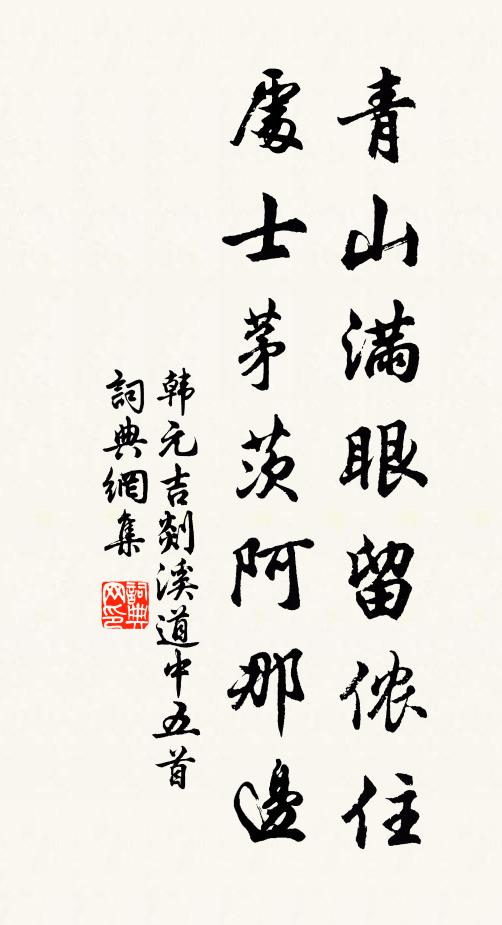 青山滿眼留侬住
處士茅茨阿那邊
韩元吉剡溪道中五首
詞典網集
詞典网印